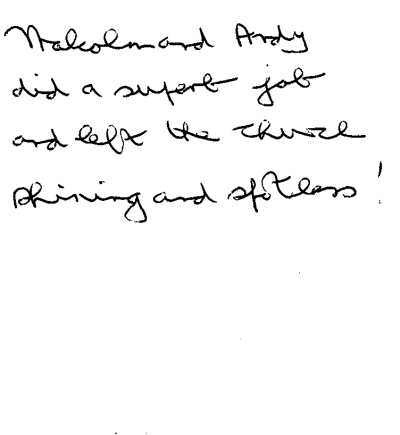 Malcolm and Andy
did a superb job
and left the church
shining and spotless!